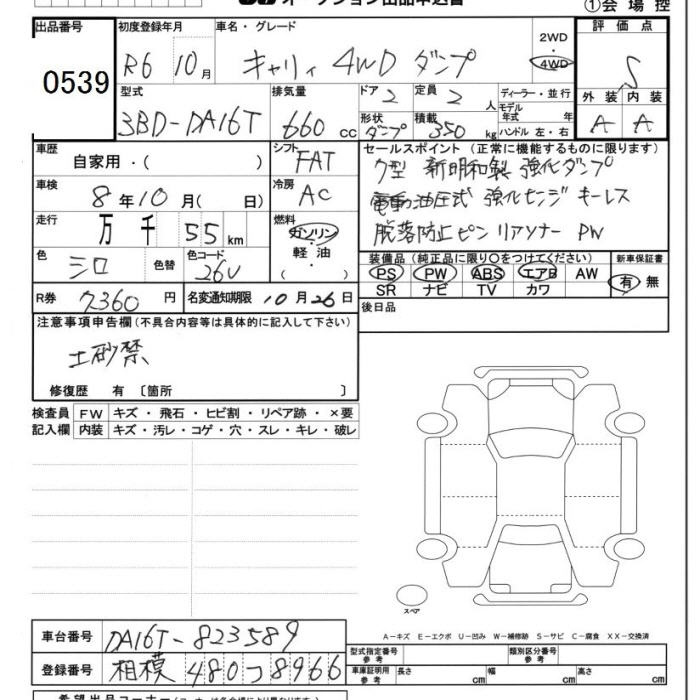 オークション出品申込書
①会場控
出品番号
0539
初度登録年月
R6 10月
車名・グレード
キャリィ 4WD ダンプ
2WD
・
4WD
評価点
S
型式
3BD-DA16T
排気量
660 cc
ドア 2
定員 2 人
形状 ダンプ
積載 350 kg
ディーラー・並行
モデル年式 年式
ハンドル 左・右
外装 内装
A A
車歴
自家用・( )
シフト
FAT
車検
8年10月( 日)
冷房
AC
走行
万 千 55 km
燃料
ガソリン
軽油
( )
色
シロ
色替
色コード
26U
R券
7360 円
名変通知期限 10月26日
セールスポイント(正常に機能するものに限ります)
7型 新明和製 強化ダンプ
電動油圧式 強化センジ キーレス
脱落防止ピン リアソナー PW
装備品(純正品に限り○をつけてください)
PS PW ABS エアB AW
SR ナビ TV カワ
新車保証書
有・無
後日品
注意事項申告欄(不具合内容等は具体的に記入して下さい)
土砂禁
修復歴 有 〔箇所 〕
検査員 FW キズ・飛石・ヒビ割・リペア跡・×要
記入欄 内装 キズ・汚レ・コゲ・穴・スレ・キレ・破レ
スペア
A-キズ E-エクボ U-凹み W-補修跡 S-サビ C-腐食 XX-交換済
車台番号 DA16T-823589
登録番号 相模 480つ8966
型式指定番号 参考
類別区分番号 参考
車庫証明用 参考 長さ cm 幅 cm 高さ cm
希望出品コーナー